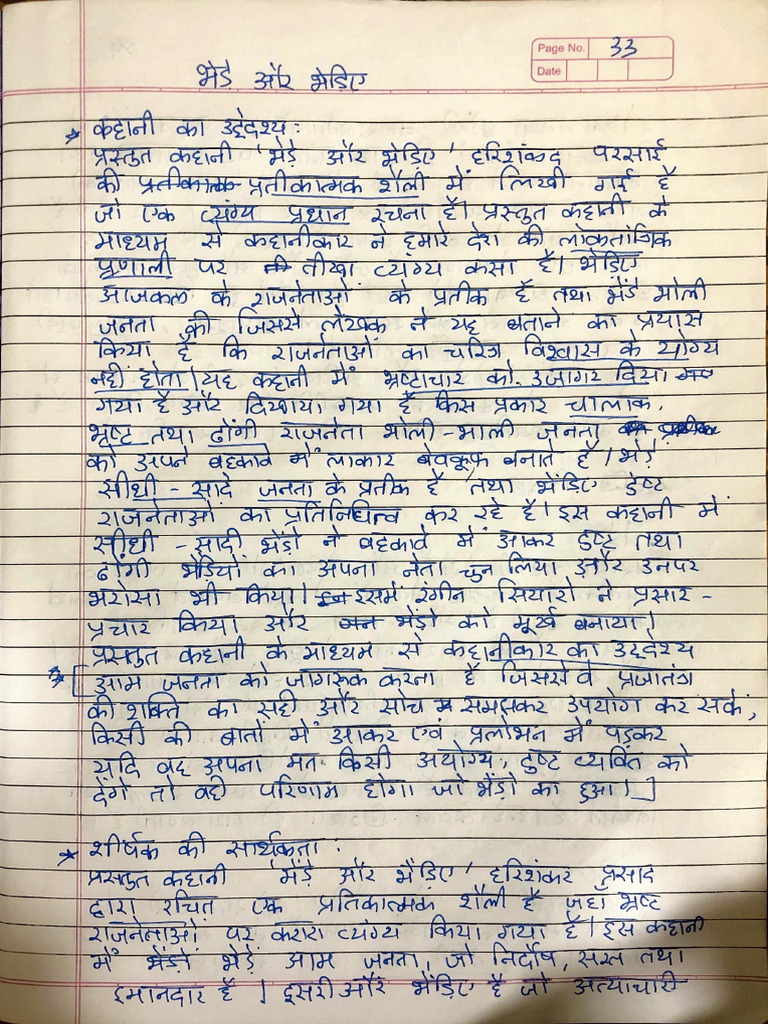 Page No. 33
Date
भेड़े और भेड़िए
* कहानी का उद्देश्य:
प्रस्तुत कहानी 'भेड़े और भेड़िए' हरिशंकर परसाई
की प्रतीकात्मक शैली में लिखी गई है
जो एक व्यंग्य प्रधान रचना है। प्रस्तुत कहानी के
माध्यम से कहानीकार ने हमारे देश की लोकतांत्रिक
प्रणाली पर तीखा व्यंग्य कसा है। भेड़िए
आजकल के राजनेताओं के प्रतीक हैं तथा भेड़े भोली
जनता की जिससे लेखक ने यह बताने का प्रयास
किया है कि राजनेताओं का चरित्र विश्वास के योग्य
नहीं होता। यह कहानी में भ्रष्टाचार को उजागर किया
गया है और दिखाया गया है किस प्रकार चालाक,
भ्रष्ट तथा ढोंगी राजनेता भोली-भाली जनता
को अपने बहकावे में लाकार बेवकूफ बनाते हैं। भेड़े
सीधी - सादे जनता के प्रतीक हैं तथा भेड़िए दुष्ट
राजनेताओं का प्रतिनिधित्व कर रहे हैं। इस कहानी में
सीधी - सादी भेंड़ो ने बहकावे में आकर दुष्ट तथा
ढोंगी भेड़ियों का अपना नेता चुन लिया और उनपर
भरोसा भी किया। इसमें रंगीन सियारो ने प्रसार -
प्रचार किया और भेंड़ो को मूर्ख बनाया।
प्रस्तुत कहानी के माध्यम से कहानीकार का उद्देश्य
* [ आम जनता को जागरूक करना है जिससे वे प्रजातंत्र
की शक्ति का सही और सोच समझकर उपयोग कर सकें,
किसी की बातों में आकर एवं प्रलोभन में पड़कर
यदि वह अपना मत किसी अयोग्य, दुष्ट व्यक्ति को
देंगे तो वही परिणाम होगा जो भेंड़ो का हुआ। ]
* शीर्षक की सार्थकता:
प्रस्तुत कहानी 'भेंड़े और भेड़िए' हरिशंकर प्रसाद
द्वारा रचित एक प्रतिकात्मक शैली है जहाँ भ्रष्ट
राजनेताओं पर करारा व्यंग्य किया गया है। इस कहानी
में भेड़े आम जनता, जो निर्दोष, सरल तथा
इमानदार है। दूसरी और भेंड़िए है जो अत्याचारी